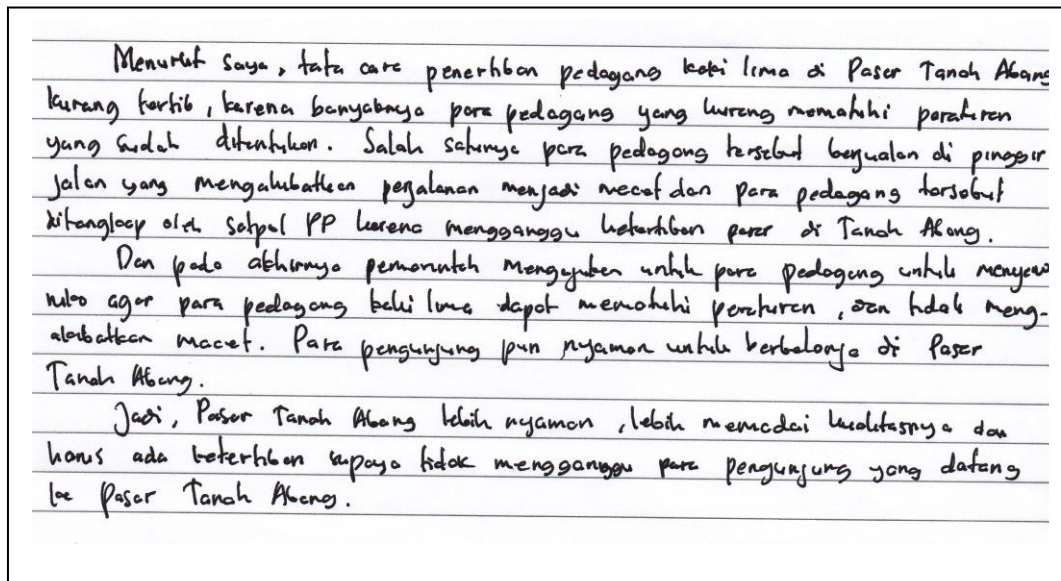 Menurut saya, tata cara penertiban pedagang kaki lima di Pasar Tanah Abang
kurang tertib, karena banyaknya para pedagang yang kurang mematuhi peraturan
yang sudah ditentukan. Salah satunya para pedagang tersebut berjualan di pinggir
jalan yang mengakibatkan perjalanan menjadi macet dan para pedagang tersebut
ditangkap oleh satpol PP karena mengganggu ketertiban pasar di Tanah Abang.
Dan pada akhirnya pemerintah mengajukan untuk para pedagang untuk menyewa
ruko agar para pedagang kaki lima dapat mematuhi peraturan, dan tidak meng-
akibatkan macet. Para pengunjung pun nyaman untuk berbelanja di Pasar
Tanah Abang.
Jadi, Pasar Tanah Abang lebih nyaman, lebih memadai kualitasnya dan
harus ada ketertiban supaya tidak mengganggu para pengunjung yang datang
ke Pasar Tanah Abang.